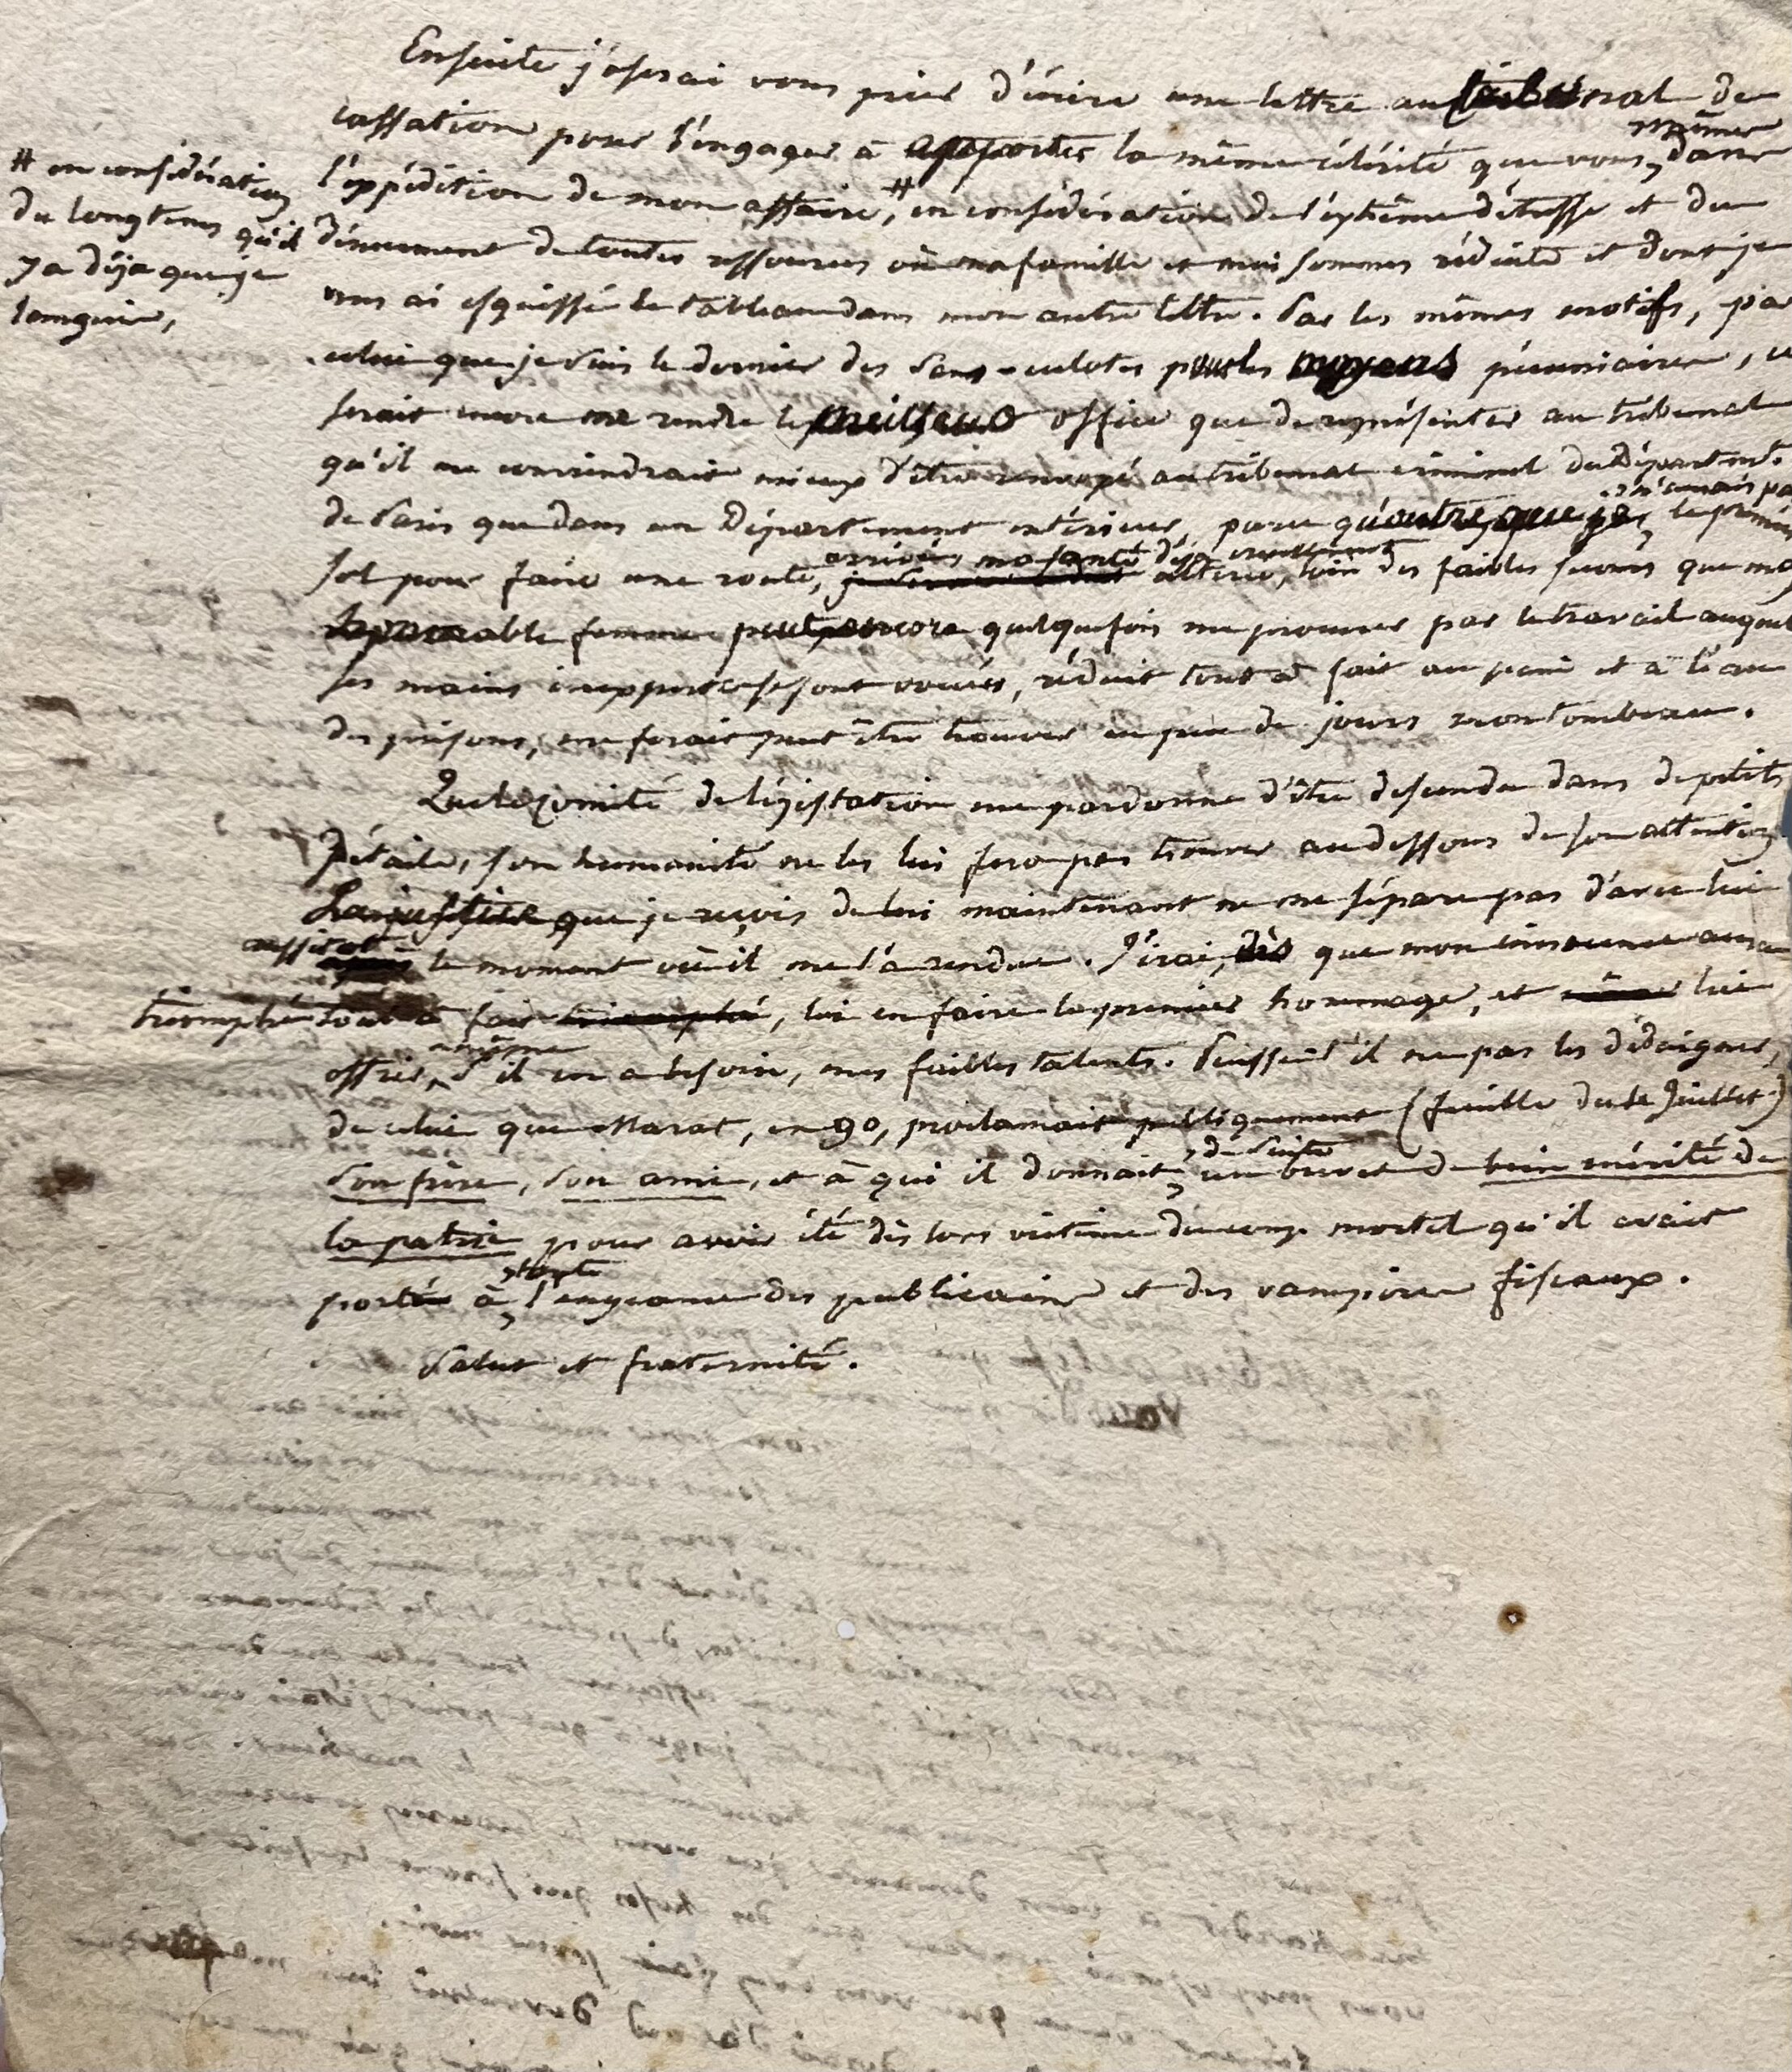 Ensuite j'oserai vous prier d'écrire une lettre au tribunal de
cassation pour l'engager à apporter la même célérité que vous mêmes dans
l'expédition de mon affaire, # en considération de l'extrême détresse et du
# en considération
du longtems qu'il
y a déja que je
languis,
dénuement de toutes ressources où ma famille et moi sommes réduits et dont je
vous ai esquissé le tableau dans mon autre lettre. Par les mêmes motifs, par
celui que je suis le dernier des Sans-culotes pour les moyens pécuniaires, ce
serait encore me rendre le meilleur office que de représenter au tribunal
qu'il me conviendrait mieux d'être renvoyé au tribunal criminel du Départemt.
de Paris que dans un Département intérieur, parce qu'outre que je n'aurais pas le premier
sol pour faire une route, arrivés ma santé déja altérée, loin des faibles secours que ma
femme peut encore quelquefois me procurer par le travail auquel
ses mains se sont vouées, réduit tout à fait au pain et à l'eau
des prisons, me ferait peut être trouver en peu de jours mon tombeau.
Que le Comité de législation me pardonne d'être descendu dans de petits
détails, son humanité ne les lui fera pas trouver au dessous de son attention
La justice que je reçois de lui maintenant ne me sépare pas d'avec lui
aussitot le moment où il me l'a rendue. J'irai, dès que mon innocence aura
triomphé tout à fait triomphé, lui en faire le premier hommage, et même lui
offrir, même s'il en a besoin, mes faibles talents. Puisse-t'il ne pas les dédaigner,
de celui que Marat, en 90, proclamait publiquement (feuille du 4 Juillet)
son frère, son ami, et à qui il donnait, de suite un brevet de bien mérité de
la patrie pour avoir été dès lors victime du coup mortel qu'il avait
porté à toute l'engeance des publicains et des vampires fiscaux.
Salut et fraternité.